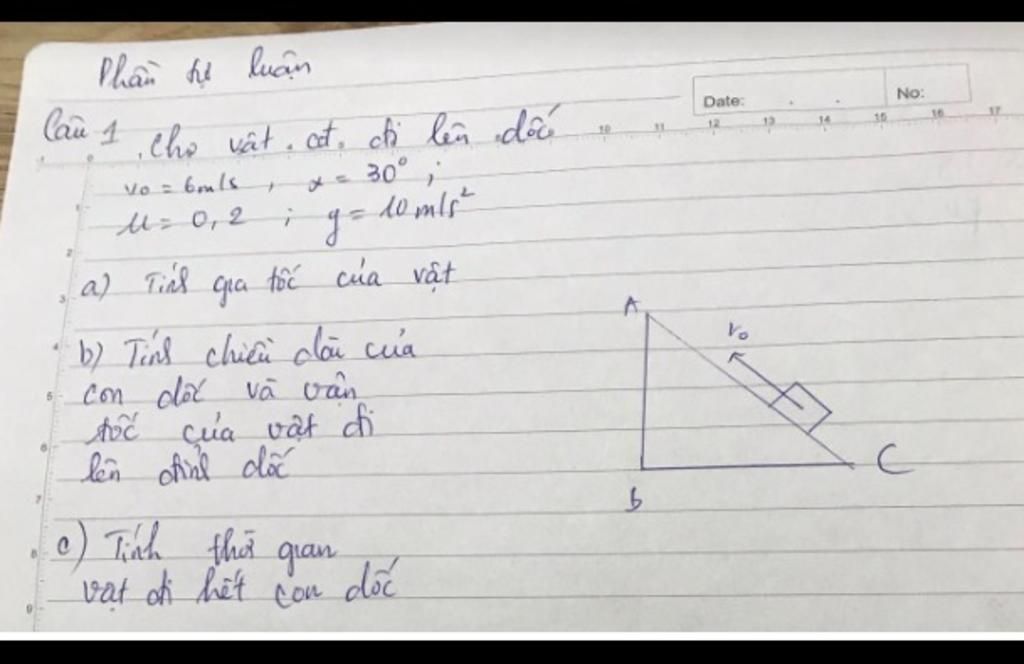 Phần tự luận
Date: . . No:
Câu 1. Cho vật . cđ . đi lên dốc
10 11 12 13 14 15 16 17
v₀ = 6m/s , α = 30° ;
μ = 0,2 ; g = 10 m/s²
a) Tính gia tốc của vật
b) Tính chiều dài của
con dốc và vận
tốc của vật đi
lên đỉnh dốc
c) Tính thời gian
vật đi hết con dốc
A
v₀
B
C
1
2
3
4
5
6
7
8
9